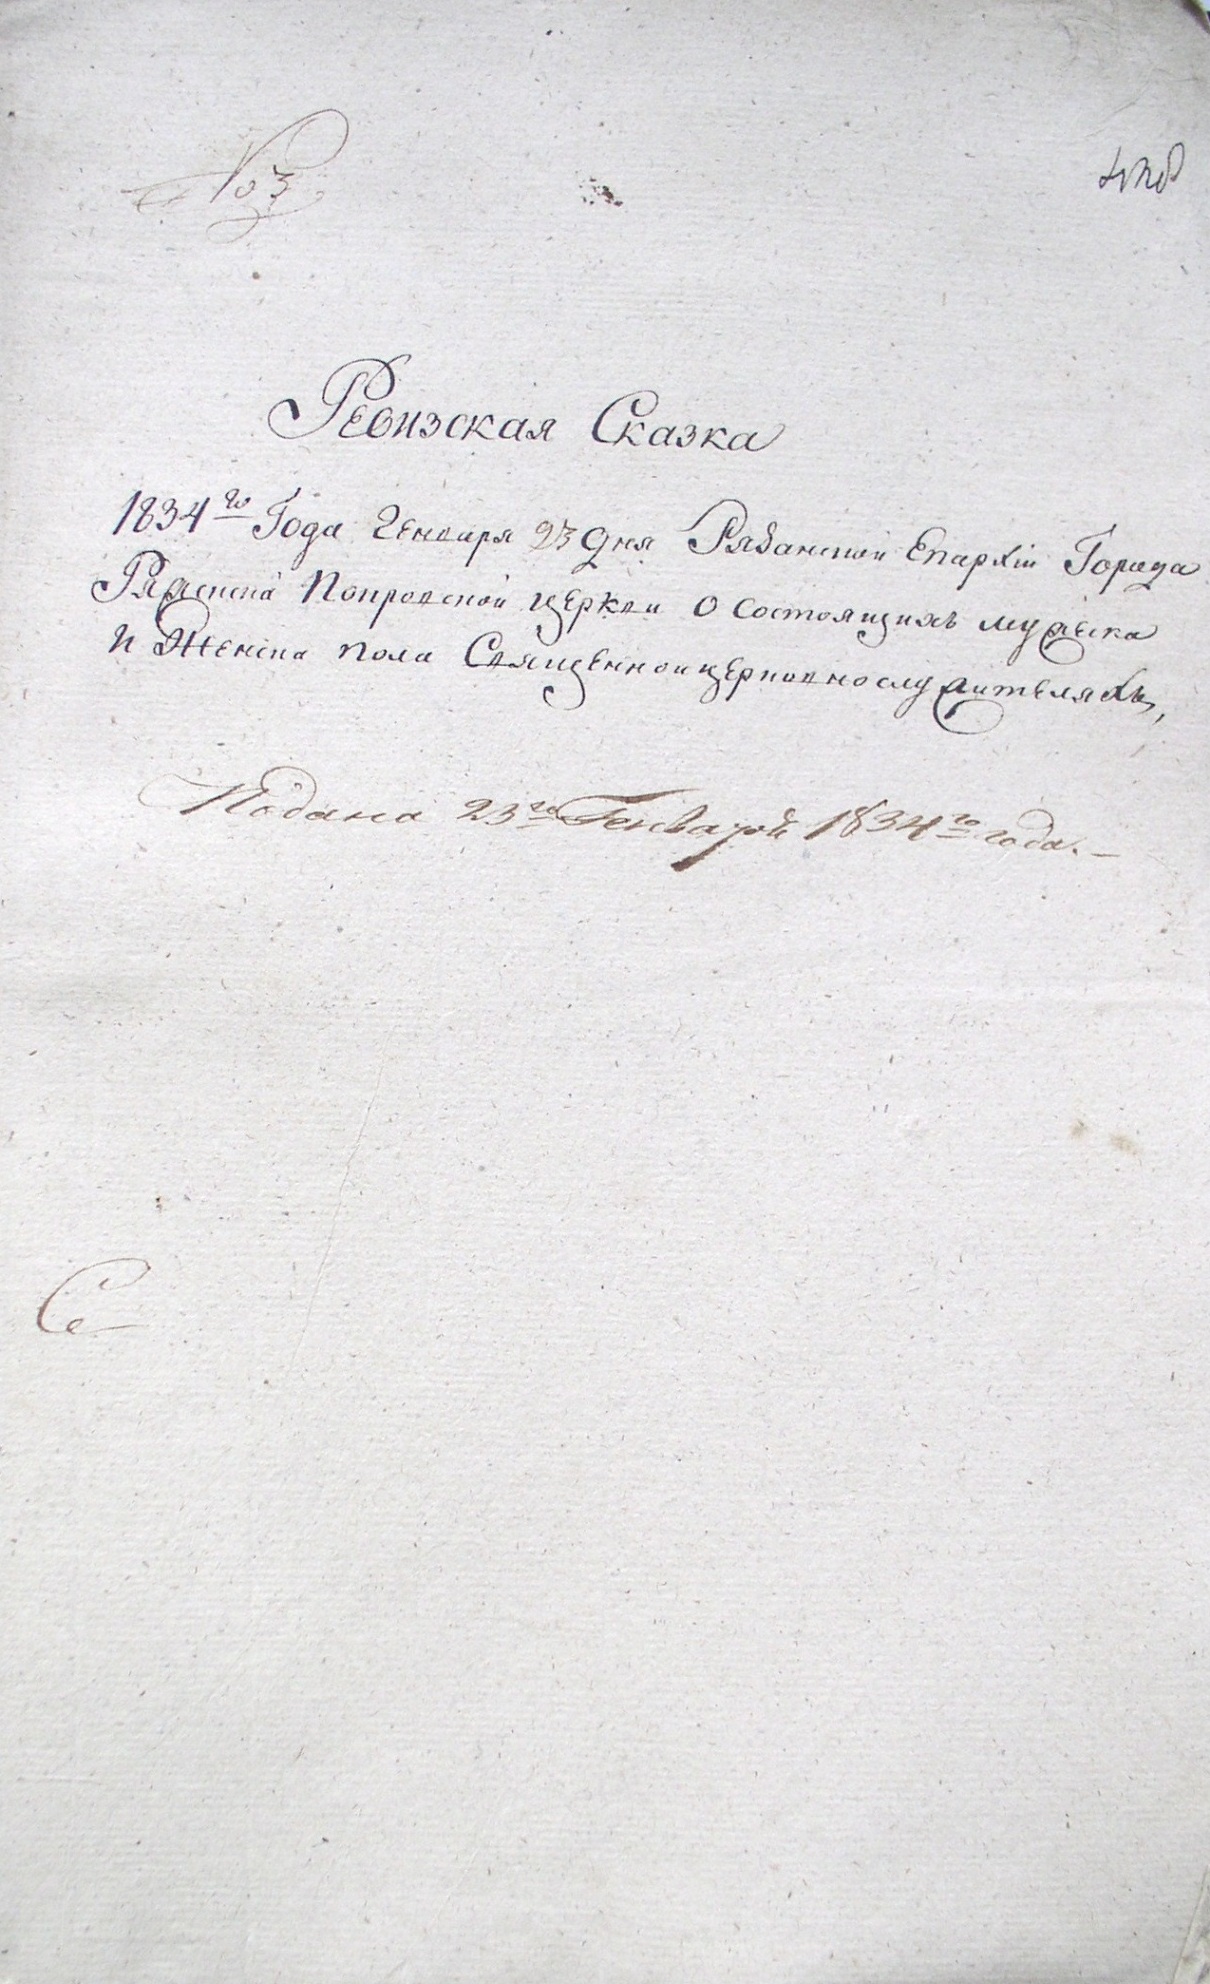 № 3
Ревизская Сказка
1834го Года Генваря 23 дня Рязанской Епархіи Города
Ряжска Покровской церкви о состоящихъ мужска
и Женска пола Священноицерковнослужителяхъ,
Подана 23го Генваря 1834го года.